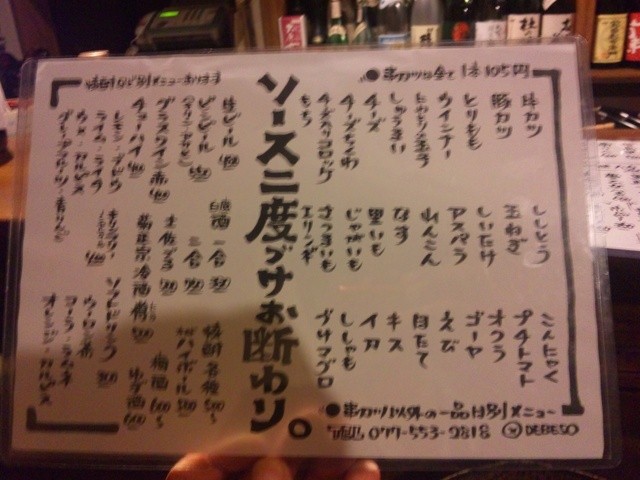 ●串カツは全て 1本105円
牛カツ
豚カツ
とりもも
ウインナー
うずら玉子
しゅうまい
チーズ
チーズちくわ
チーズコロッケ
もち
ししとう
玉ねぎ
しいたけ
アスパラ
れんこん
なす
里いも
じゃがいも
さつまいも
エリンギ
こんにゃく
プチトマト
オクラ
ゴーヤ
えび
ほたて
キス
イカ
ししゃも
ブツマグロ
●串カツ以外の一品は別メニュー
077-553-2818 DEBESO
ソース二度づけお断わり。
焼酎など別メニューあります
生ビール
ビンビール
グラスワイン 赤 白
チューハイ
レモン・ブドウ
ライム・ライチ
ウメ・カルピス
グレープフルーツ・青りんご
日本酒 一合
二合
土佐鶴
菊正宗冷酒
ソフトドリンク
ウーロン茶
コーラ・ラムネ
オレンジ・カルピス
焼酎各種 500〜
ハイボール 500
梅酒 600〜
ゆず酒 600